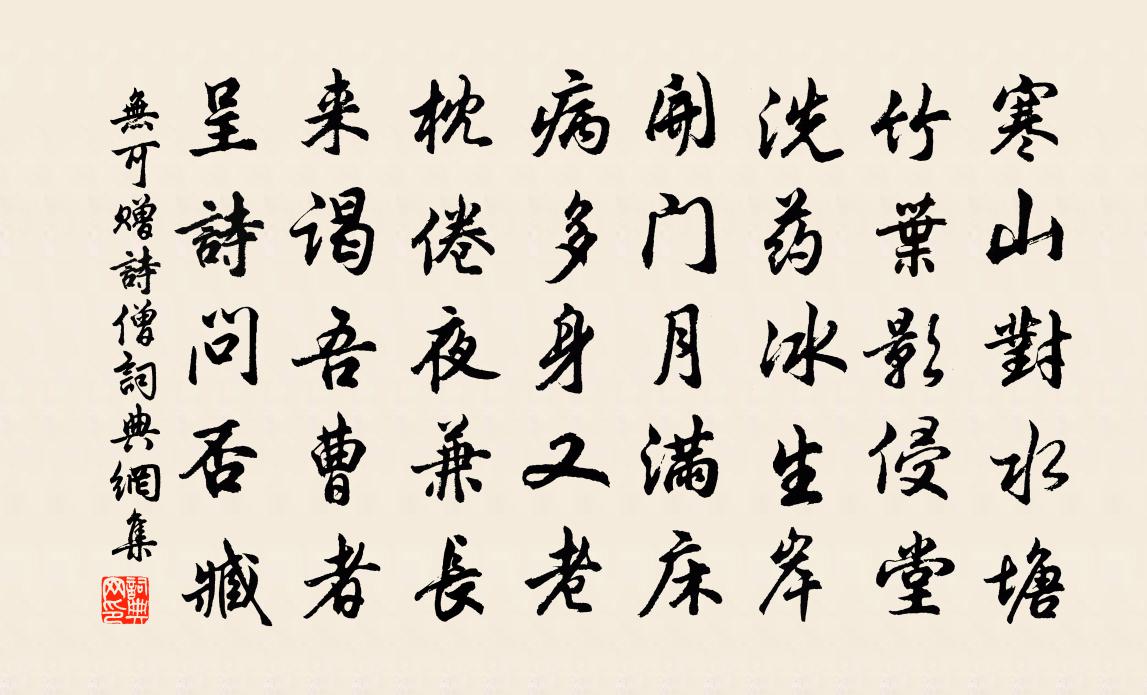 寒山對水塘
竹葉影侵堂
洗药冰生岸
開门月满床
病多身又老
枕倦夜兼長
来谒吾曹者
呈詩問否臧
無可赠詩僧詞典網集
詞典網印